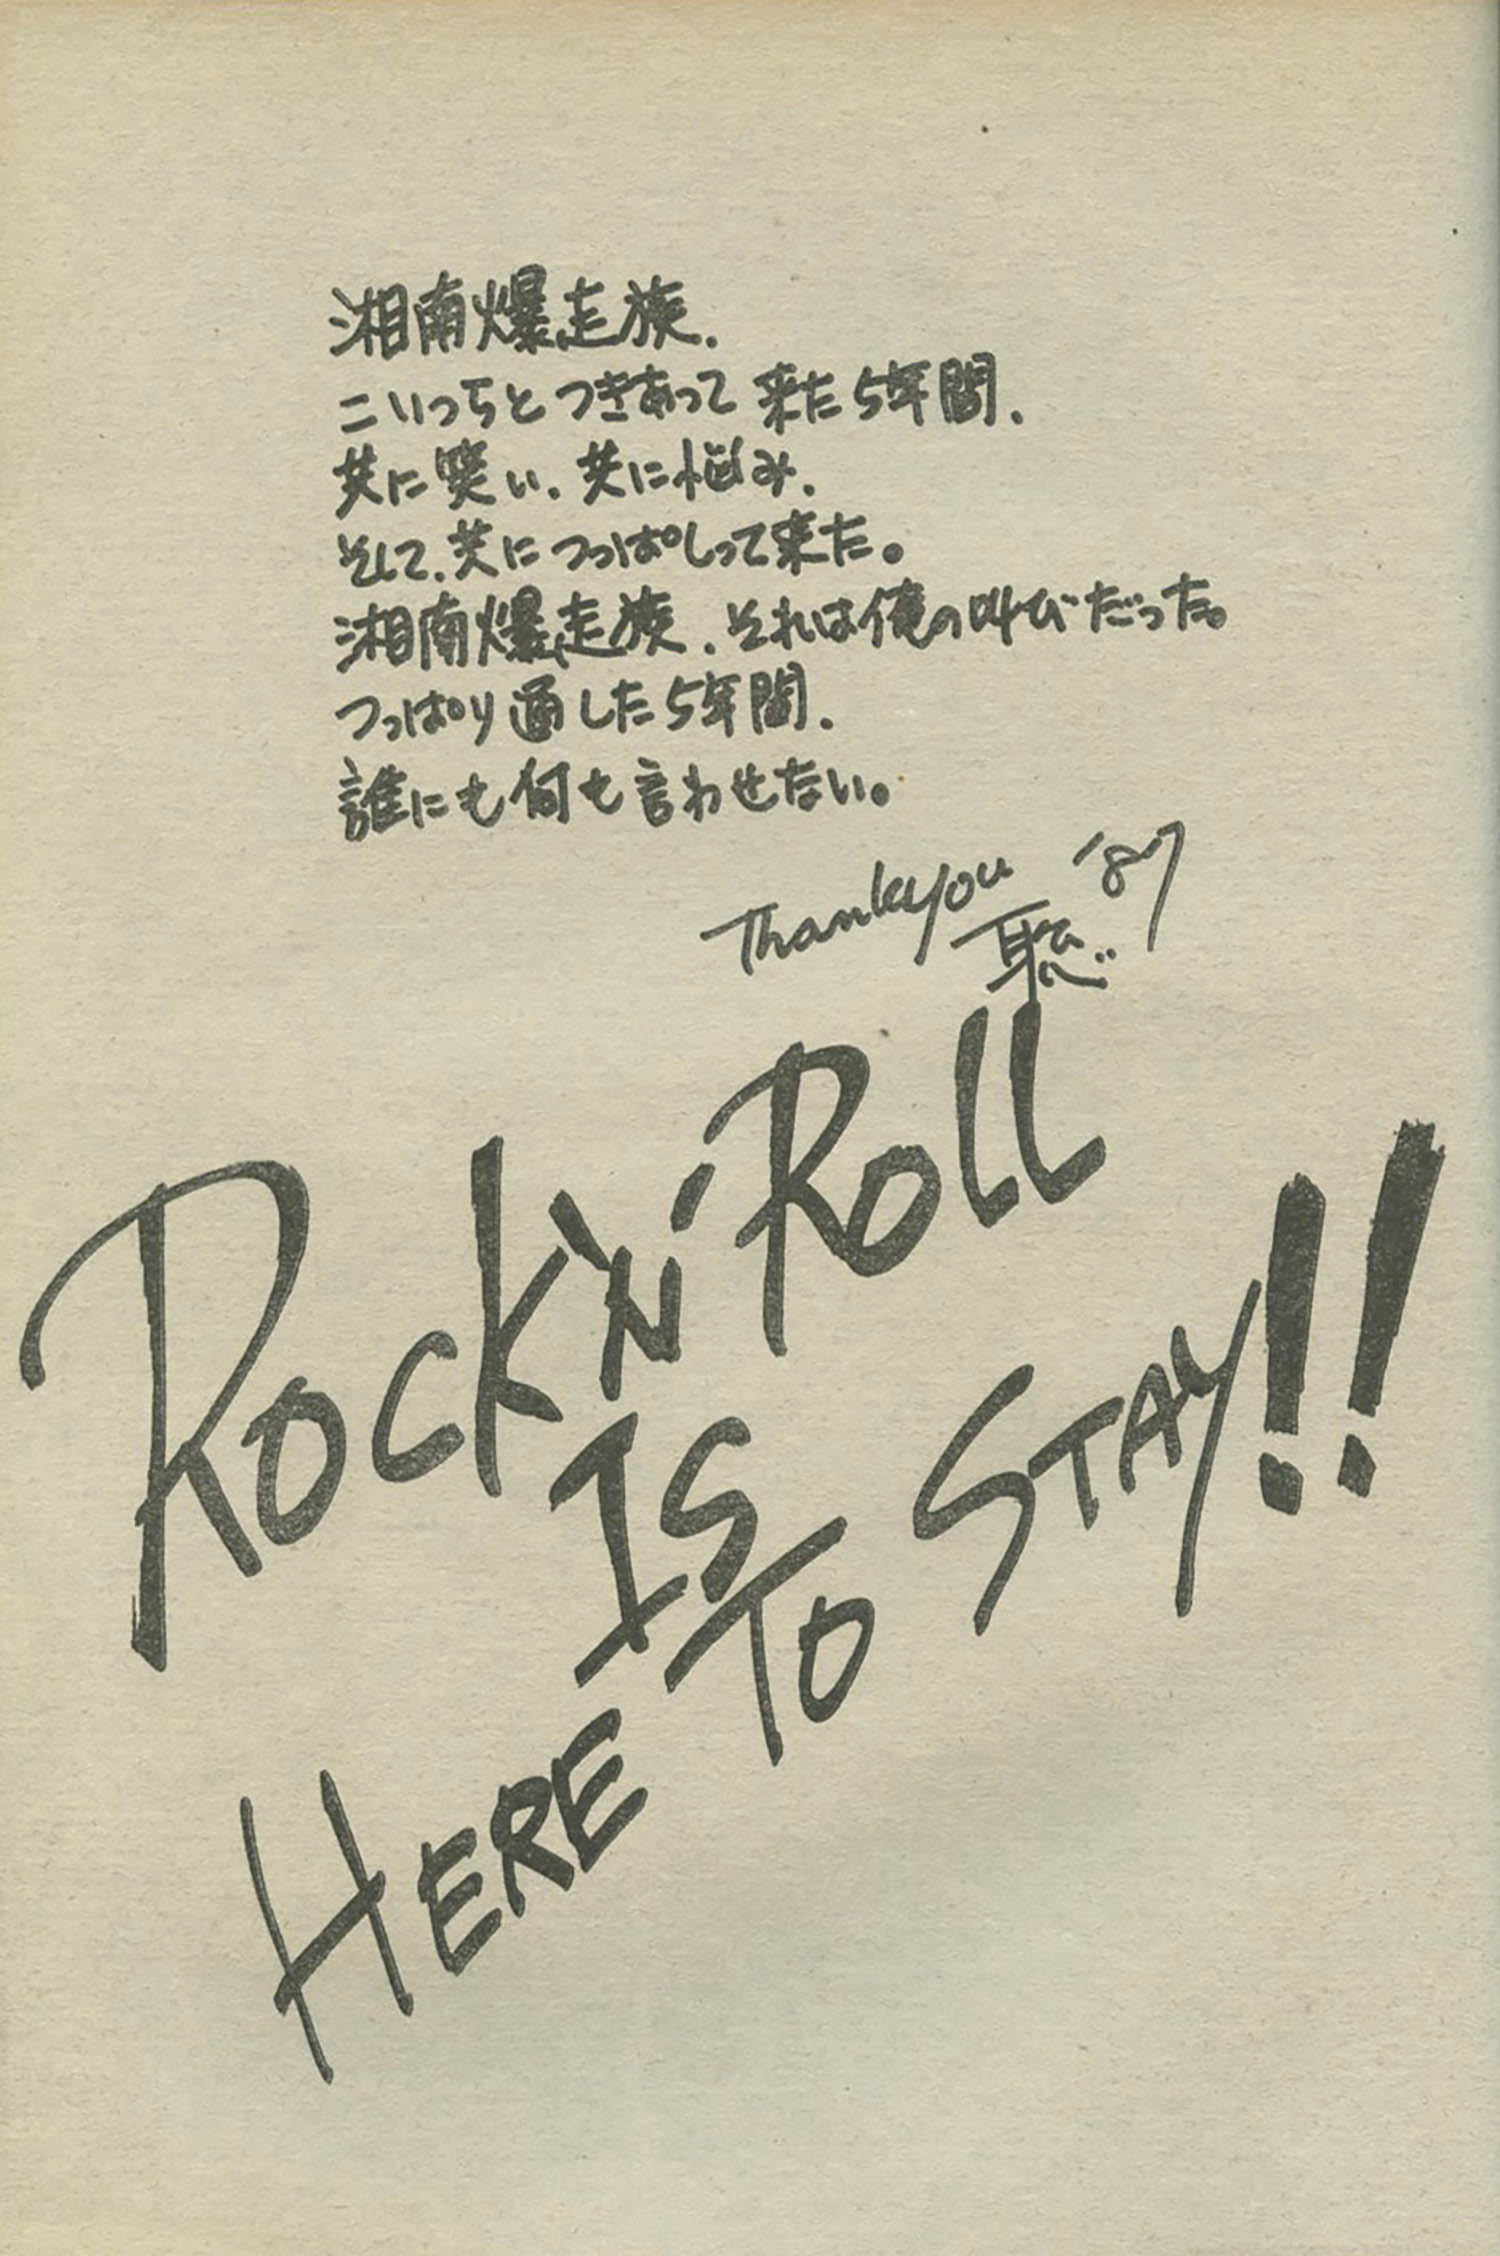 湘南爆走族.
こいつらとつきあって来た5年間.
共に笑い.共に悩み.
そして.共につっぱしって来た。
湘南爆走族.それは俺の叫びだった。
つっぱり通した5年間.
誰にも何も言わせない。
Thankyou '87
聡
ROCK'N'ROLL
IS
HERE TO STAY!!